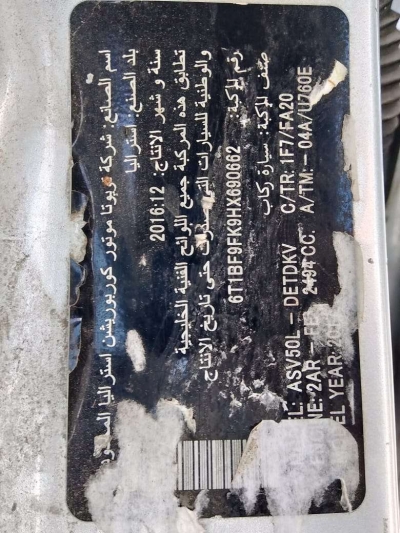 اسم الصانع: شركة تويوتا موتور كوربوريشن استراليا
بلد الصنع: استراليا
سنة و شهر الانتاج: 2016:12
تطابق هذه المركبة جميع اللوائح الفنية الخليجية
والوطنية للسيارات التي حتى تاريخ الانتاج
رقم المركبة: 6T1BF9FK9HX690662
صنف المركبة: سيارة ركاب
ASV50L – DETDKV C/TR: 1F7/FA20
2AR – FE 2494 CC. A/TM: – 04A/U760E
YEAR: